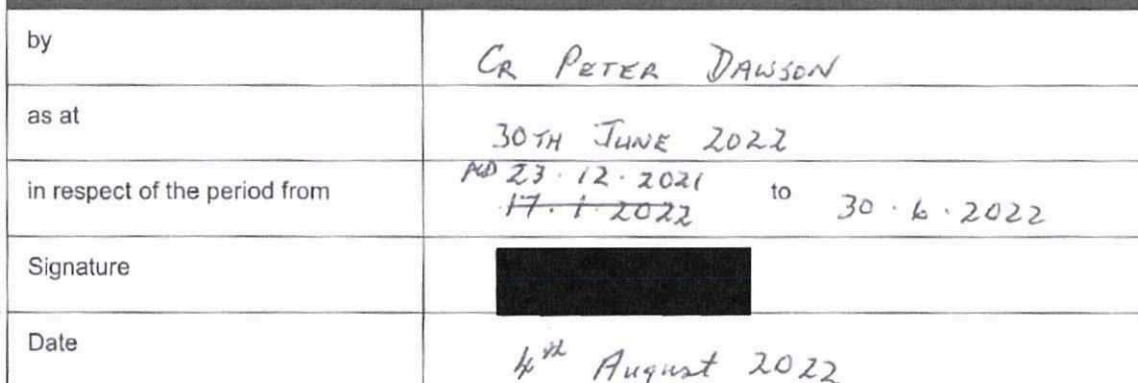 by CR PETER DAWSON
as at 30TH JUNE 2022
PGD 23.12.2021
in respect of the period from 17.1.2022 to 30.6.2022
Signature
Date 4th August 2022